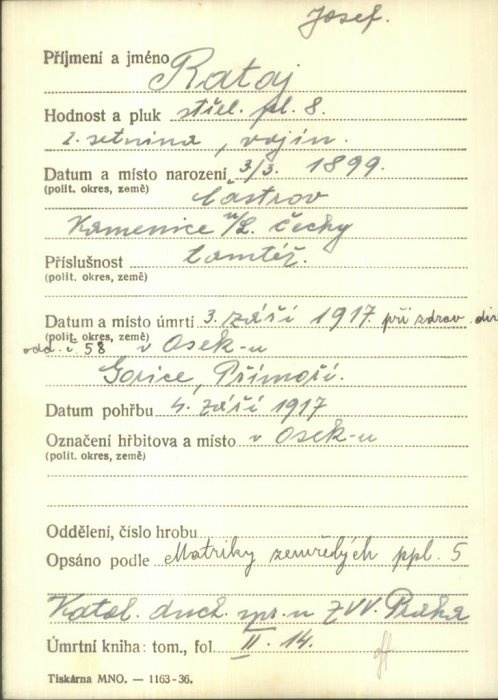 Josef.
Příjmení a jméno Rataj
Hodnost a pluk střel. pl. 8.
2. setnina, vojín.
Datum a místo narození 3/3. 1899.
(polit. okres, země) Častrov
Kamenice n/L. Čechy
Příslušnost tamtéž.
(polit. okres, země)
Datum a místo úmrtí 3. září 1917 při zdrav. div.
(polit. okres, země)
odd. č 58 v Osek-u
Gorice, Přímoří.
Datum pohřbu 4. září 1917
Označení hřbitova a místo v Osek-u
(polit. okres, země)
Oddělení, číslo hrobu
Opsáno podle Matriky zemřelých ppl. 5
Katol. duch. spr. u ZVV. Praha
Úmrtní kniha: tom., fol. II. 14.
Tiskárna MNO. — 1163-36.